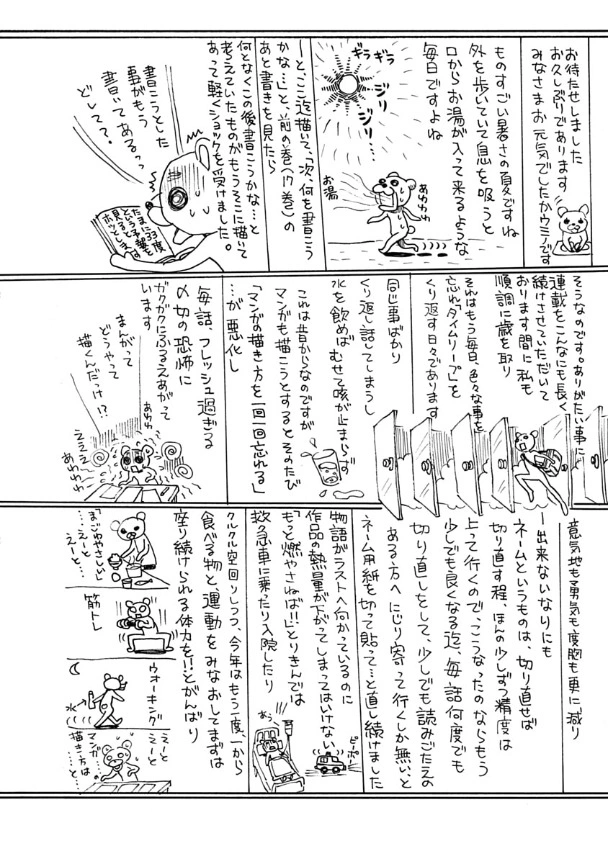 お待たせしました
お久しぶりであります
みなさまお元気でしたかウミノです
ものすごい暑さの夏ですね
外を歩いていて息を吸うと
口からお湯が入って来るような
毎日ですよね
ギラ
ギラ
ジリ
ジリ…
あわわわ
お湯
―と、ここ迄描いて、「次、何を書こう
かな…」と、前の巻(17巻)の
あと書きを見たら
何となくこの後書こうかな…と
考えていたものがもうそこに描いて
あって軽くショックを受けました。
書こうとした
事がもう
書いてあるっっ
どしてて?
たまに33度
という予報を
見るとすると
ホッとします
そうなのです。ありがたい事に
連載をこんなにも長く
続けさせていただいて
おります間に私も
順調に歳を取り
それはもう毎日、色々な事を
忘れ「タイムリープ」を
くり返す日々であります
同じ事ばかり
くり返し話してしまうし
水を飲めばむせて咳が止まらず
これは昔からなのですが
マンガも描こうとするとそのたび
「マンガの描き方を一回一回忘れる」
…が悪化し
毎話、フレッシュ過ぎる
〆切の恐怖に
ガクガクにふるえあがって
います
まんがって
どうやって
描くんだっけ!?
あわわ
ええええ
あわわわ
意気地も男気も度胸も更に減り
―出来ないなりにも
ネームというものは、切り直せば
切り直す程、ほんの少しずつ精度は
上って行くので、こうなったのならもう
少しでも良くなる迄、毎話何度でも
切り直しをして、少しでも読みごたえの
ある方へにじり寄って行くしか無い、と
ネーム用紙を切って貼って…と直し続けました
物語がラストへ向かっているのに
作品の熱量が下がってしまってはいけない
「もっと燃やさねば!!」とりきんでは
救急車に乗ったり入院したり
あぅ
ピーポー
クルクル空回りしつつ、今年はもう一度、一から
食べる物と運動をみなおしてまずは
座り続けられる体力を!!とがんばり
「まごわやさしい」
…えーと
えーと…
筋トレ
ウォーキング
水
えーと
えーと
マンガ…の
描き方は
…と